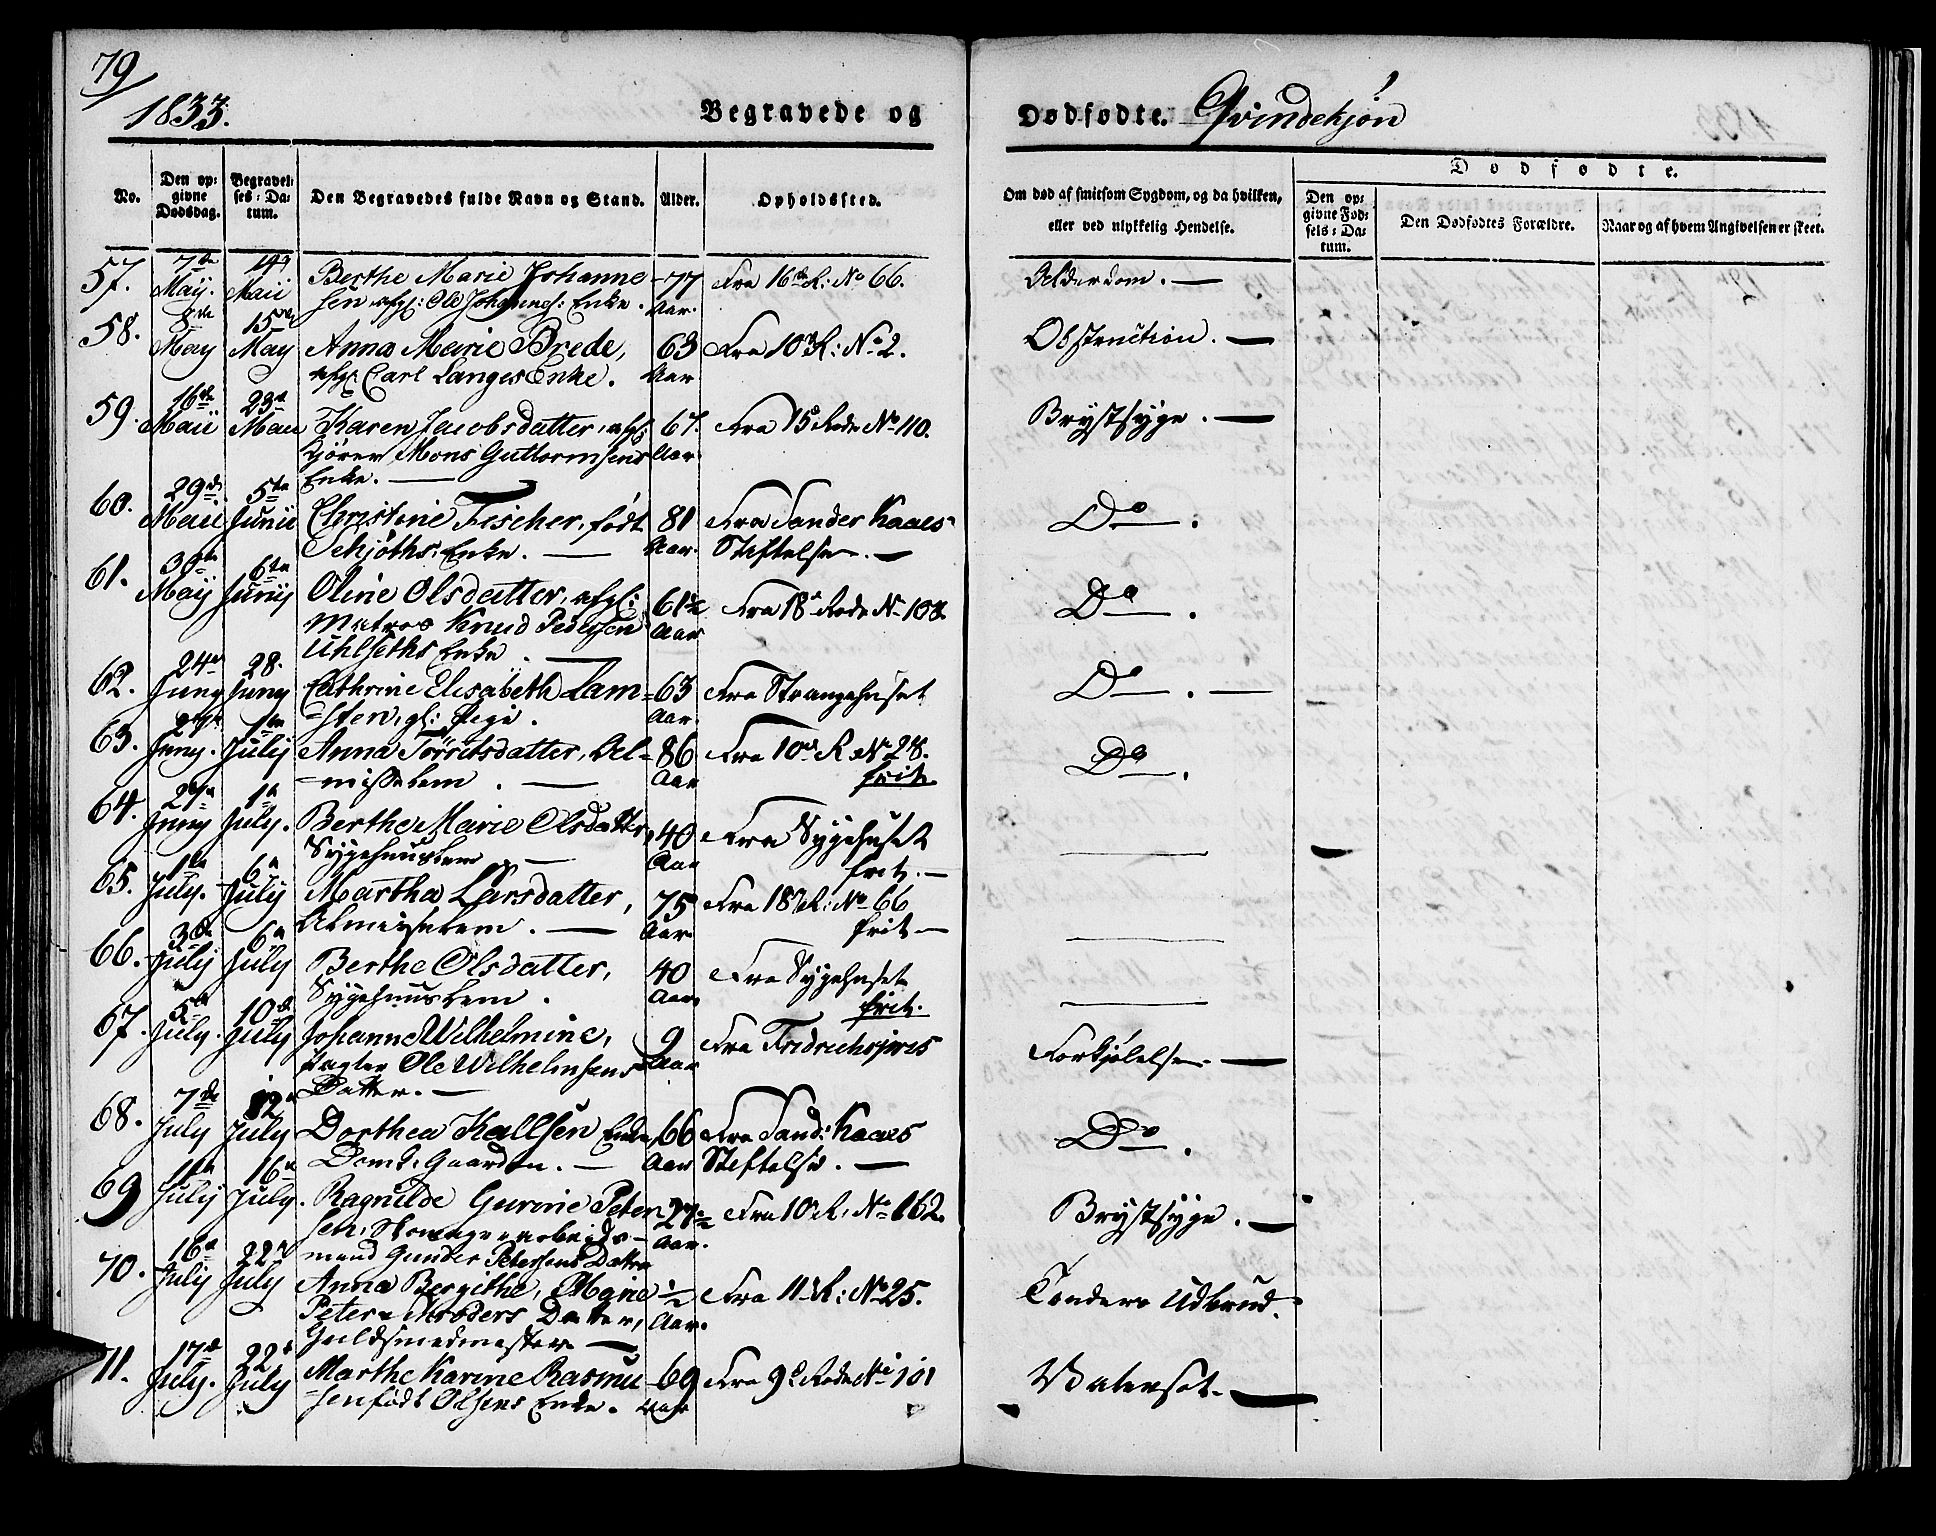 79
1833.
Begravede og Dødfødte. Qvindekjøn
No.
Den opgivne Dødsdag.
Begravelses-Datum.
Den Begravedes fulde Navn og Stand.
Alder.
Opholdssted.
Om død af smitsom Sygdom, og da hvilken, eller ved ulykkelig Hendelse.
Dødfødte.
Den opgivne Fødsels-Datum.
Den Dødfødtes Forældre.
Naar og af hvem Angivelsen er skeet.
57. 7de 14 Berthe Marie Johanne 77 Fra 16de R: No 66. Alderdom. —
May. Maii sen afgl: Ole Johannes: Enke. Aar.
58. 8de 15de Anna Marie Brede, 63 Fra 10 R: No 2. Obstruction. —
May May afgl: Carl Langes Enke. Aar
59. 16de 23d Karen Jacobsdatter, afgl: 67. Fra 15 Rode No 110. Brystsyge. —
Maii Maii Kjører Mons Guttormsens Aar.
Enke. —
60. 29de 5te Christine Fischer, født 81 Fra Sander Kaaes Do.
Maii Junii Schjøths: Enke. — Aar. Stiftelse. —
61. 30te 6te Oline Olsdatter, afgl: 61½ Fra 18 Rode No 108. Do.
Maij Junij Matros Knud Pedersen Aar
Uhlseths Enke. —
62. 24 28. Cathrine Elisabeth Lam= 63 Fra Strangehuset Do. —
Juny Juny =sten, gl: Pige. Aar.
63. 27 1te Anna Torritsdatter, Al= 86 Fra 10 R No 28. Do.
Juny. July =misselem. — Aar frit.
64. 27 1te Berthe Marie Olsdatter, 40 Fra Sygehuset —
Juny July. Sygehuuslem — Aar frit. —
65. 1te 6te Martha Larsdatter, 75 Fra 18 R: No 66 —
July. July Almisselem. — Aar frit —
66. 3de 6te Berthe Olsdatter, 40 Fra Sygehuset —
July July Sygehuuslem. Aar frit.
67. 5te 10de Johanne Wilhelmine, 9 Fra Fridrichsjores Forkjølelse. —
July. July Pagter Ole Wilhelmsens Aar
Datter. —
68. 7de 12 Dorthea Kallsen Enke 66 Fra Sand: Kaaes Do.
July July Domk: Gaarden. — Aar Stiftelse. —
69 11te 16 Ragnilde Gurine Peter 27½ Fra 10 R: No 162. Brystsyge. —
July July. sen, Aar.
mand Gunder Petersens Datter
70. 16 22 Anna Bergithe, Marie ½ Fra 11 R: No 25. Tænders Udbrud.
July July Peter Datter, Aar.
Guldsmedmester —
71. 17de 22 Marthe Karine Rasmu 69 Fra 9de Rode No 101 Vatersot. —
July. July =sen født Olsens Enke. Aar